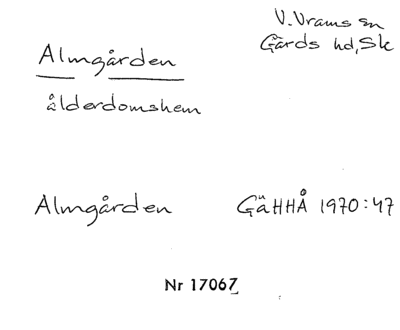 V. Vrams sn
Gärds hd, Sk
Almgården
ålderdomshem
Almgården GäHHÅ 1970:47
Nr 17067